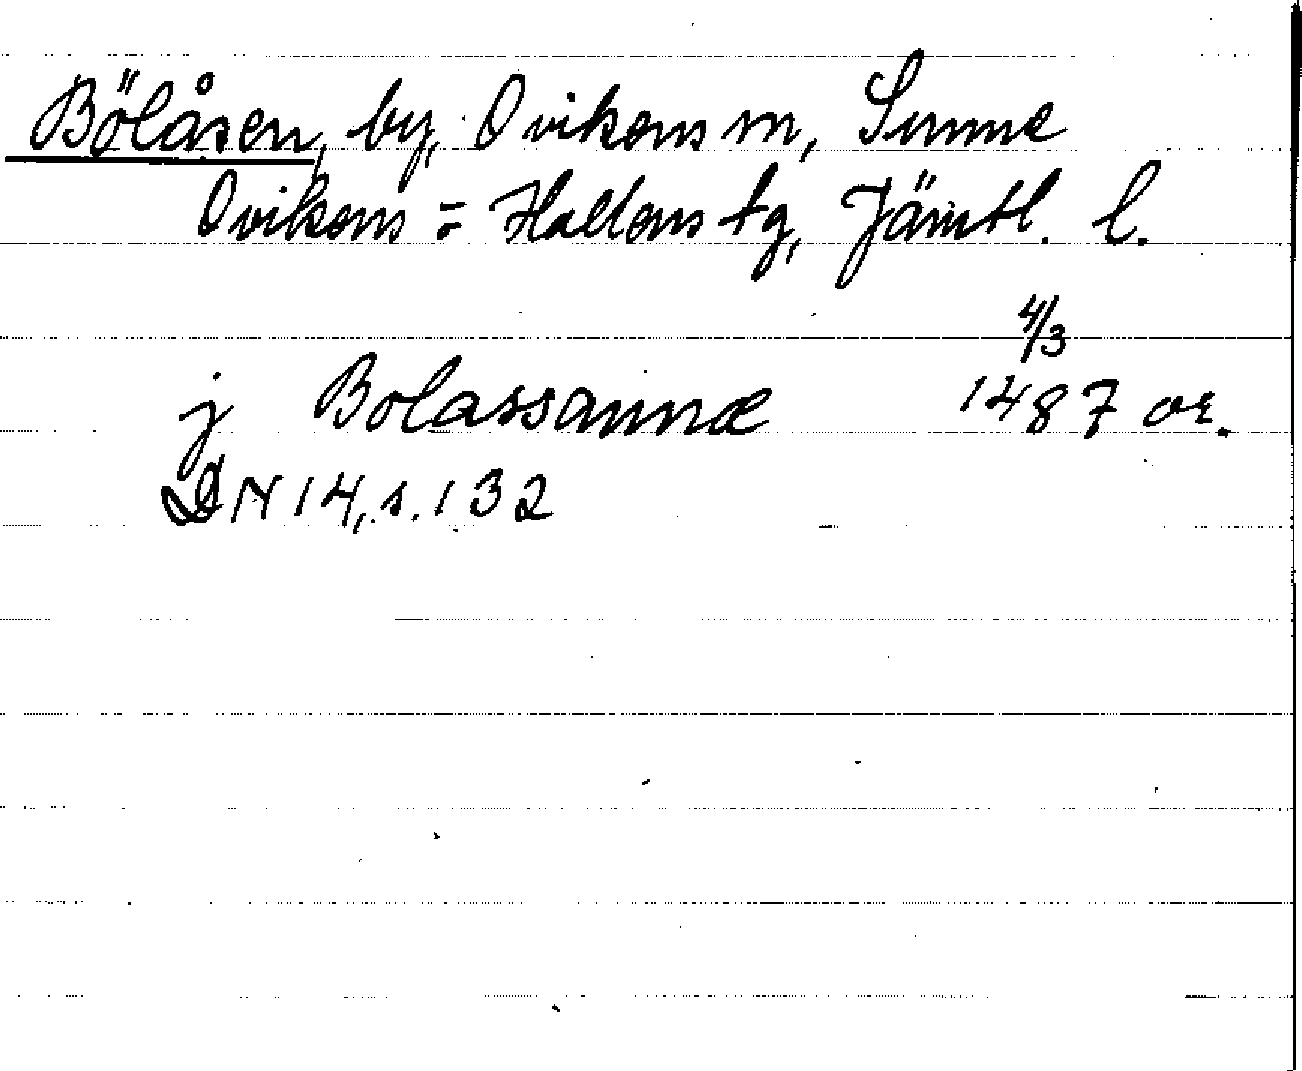 Bölåsen, by, Ovikens sn, Sunne
Ovikens = Hallens tg, Jämtl. l.
4/3
j Bolassannæ 1487 or.
DN 14, s. 132